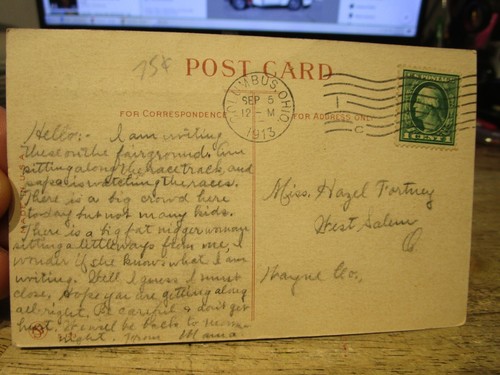 75¢
POST CARD
COLUMBUS, OHIO
SEP 5
12-M
1913
1
C
U.S. POSTAGE
1 CENT 1
FOR CORRESPONDENCE
FOR ADDRESS ONLY
Hello;- I am writing
these on the fairground. Am
sitting along the race track, and
papa is watching the races.
There is a big crowd here
today but not many kids.
There is a big fat nigger woman
sitting a little ways from me, I
wonder if she knows what I am
writing. Well I guess I must
close, Hope you are getting along
all-right. Be careful & don't get
hurt. We will be back to-
night. From Mama.
Miss. Hazel Fortney
West Salem
O
Wayne Co.,